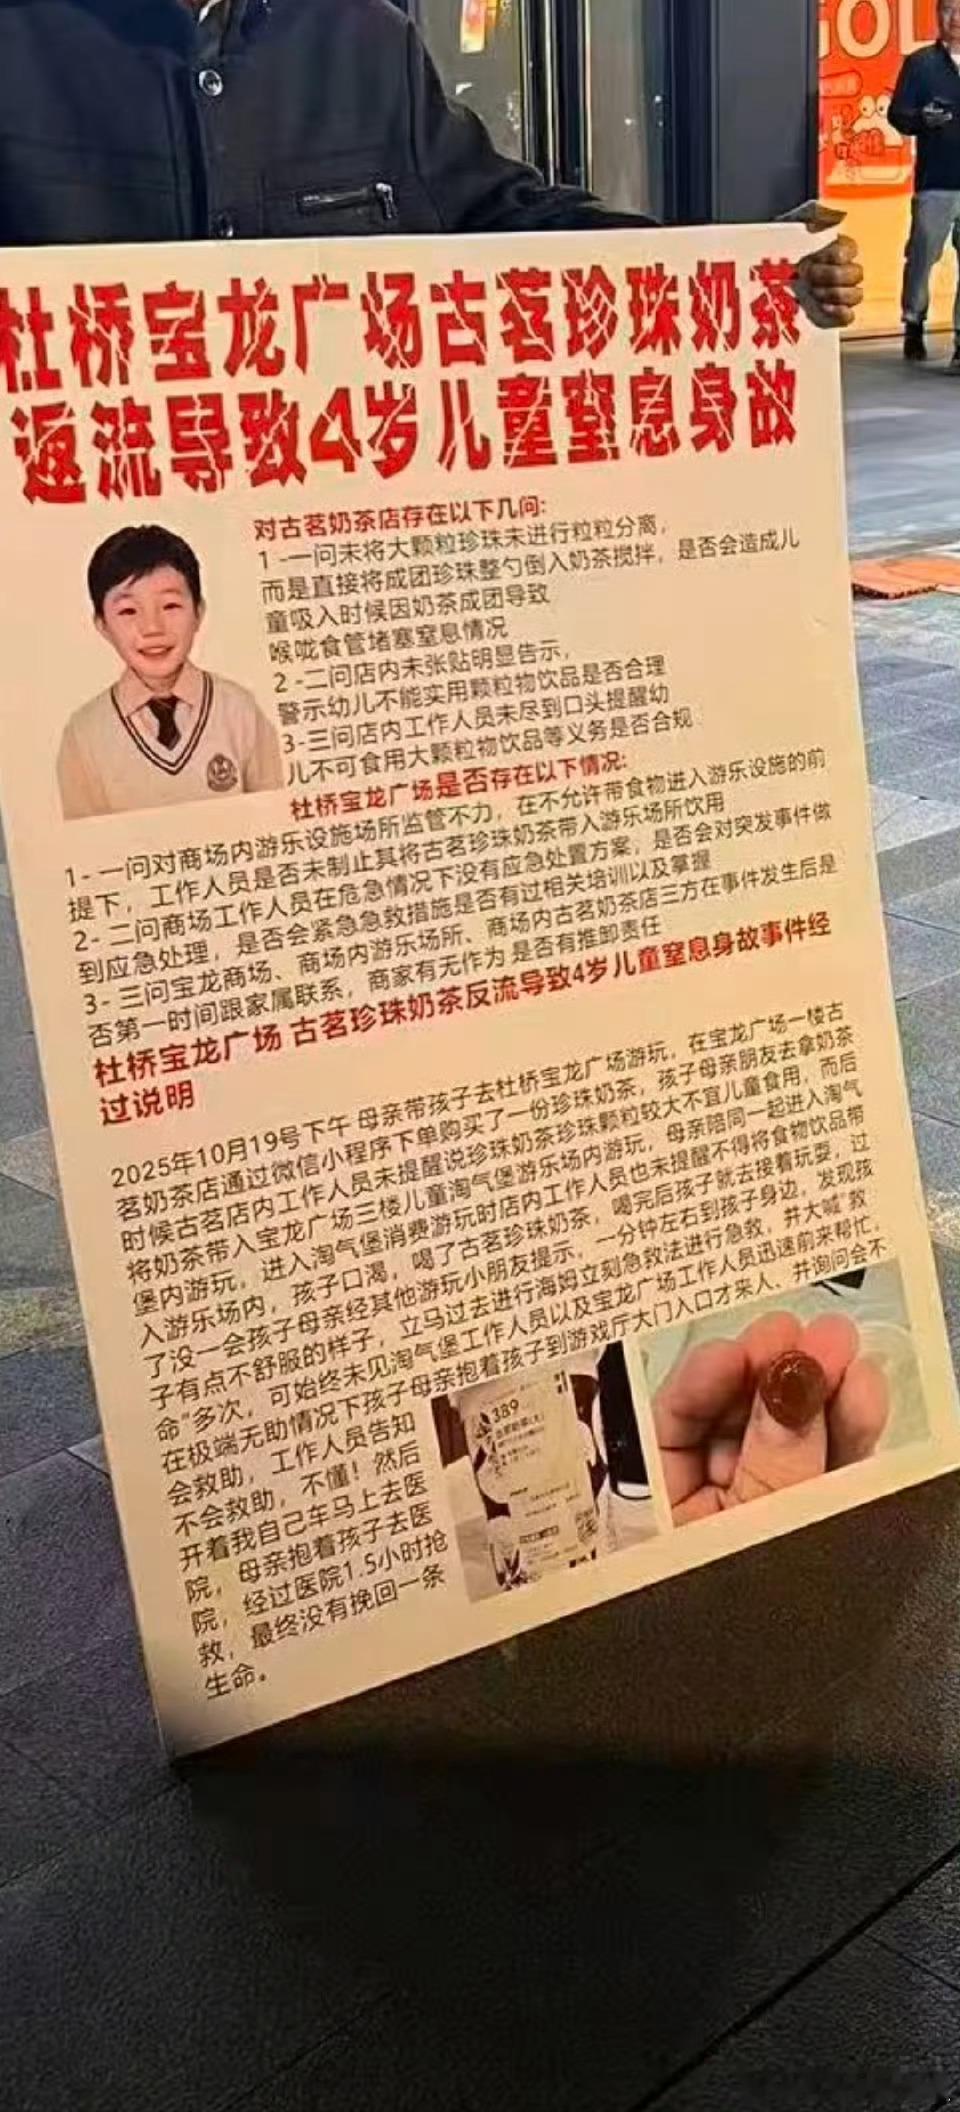 杜桥宝龙广场古茗珍珠奶茶
返流导致4岁儿童窒息身故
对古茗奶茶店存在以下几问:
1 -一问未将大颗粒珍珠未进行粒粒分离，
而是直接将成团珍珠整勺倒入奶茶搅拌，是否会造成儿
童吸入时候因奶茶成团导致
喉咙食管堵塞窒息情况
2 -二问店内未张贴明显告示，
警示幼儿不能实用颗粒物饮品是否合理
3-三问店内工作人员未尽到口头提醒幼
儿不可食用大颗粒物饮品等义务是否合规
杜桥宝龙广场是否存在以下情况:
1- 一问对商场内游乐设施场所监管不力，在不允许带食物进入游乐设施的前
提下，工作人员是否未制止其将古茗珍珠奶茶带入游乐场所饮用
2- 二问商场工作人员在危急情况下没有应急处置方案，是否会对突发事件做
到应急处理，是否会紧急急救措施是否有过相关培训以及掌握
3- 三问宝龙商场、商场内游乐场所、商场内古茗奶茶店三方在事件发生后是
否第一时间跟家属联系，商家有无作为 是否有推卸责任
杜桥宝龙广场 古茗珍珠奶茶反流导致4岁儿童窒息身故事件经
过说明
2025年10月19号下午 母亲带孩子去杜桥宝龙广场游玩，在宝龙广场一楼古
茗奶茶店通过微信小程序下单购买了一份珍珠奶茶，孩子母亲朋友去拿奶茶
时候古茗店内工作人员未提醒说珍珠奶茶珍珠颗粒较大不宜儿童食用，而后
将奶茶带入宝龙广场三楼儿童淘气堡游乐场内游玩，母亲陪同一起进入淘气
堡内游玩，进入淘气堡消费游玩时店内工作人员也未提醒不得将食物饮品带
入游乐场内，孩子口渴，喝了古茗珍珠奶茶，喝完后孩子就去接着玩耍，过
了没一会孩子母亲经其他游玩小朋友提示，一分钟左右到孩子身边，发现孩
子有点不舒服的样子，立马过去进行海姆立刻急救法进行急救，并大喊“救
命”多次，可始终未见淘气堡工作人员以及宝龙广场工作人员迅速前来帮忙，
在极端无助情况下孩子母亲抱着孩子到游戏厅大门入口才来人、并询问会不
会救助，工作人员告知
不会救助，不懂！然后
开着我自己车马上去医
院，母亲抱着孩子去医
院，经过医院1.5小时抢
救，最终没有挽回一条
生命。
389